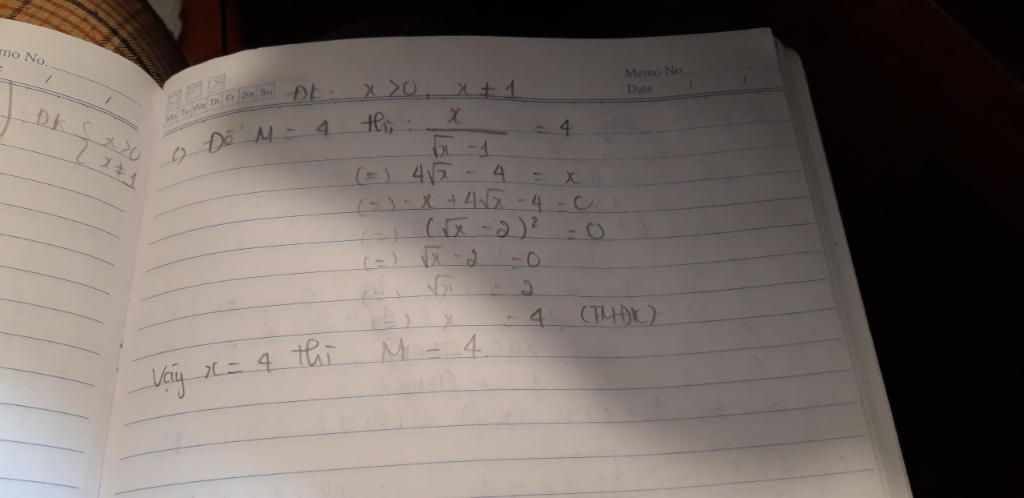 mo No.
: ĐK { x>0
x≠1
Mo Tu We Th Fr Sa Su
Memo No.
Date / /
ĐK: x >0; x ≠ 1
c) Để M = 4 thì: x/(√x - 1) = 4
(=) 4√x - 4 = x
(=) - x + 4√x - 4 = 0
(=) (√x - 2)² = 0
(=) √x - 2 = 0
(=) √x = 2
(=) x = 4 (TMĐK)
Vậy x = 4 thì M = 4.